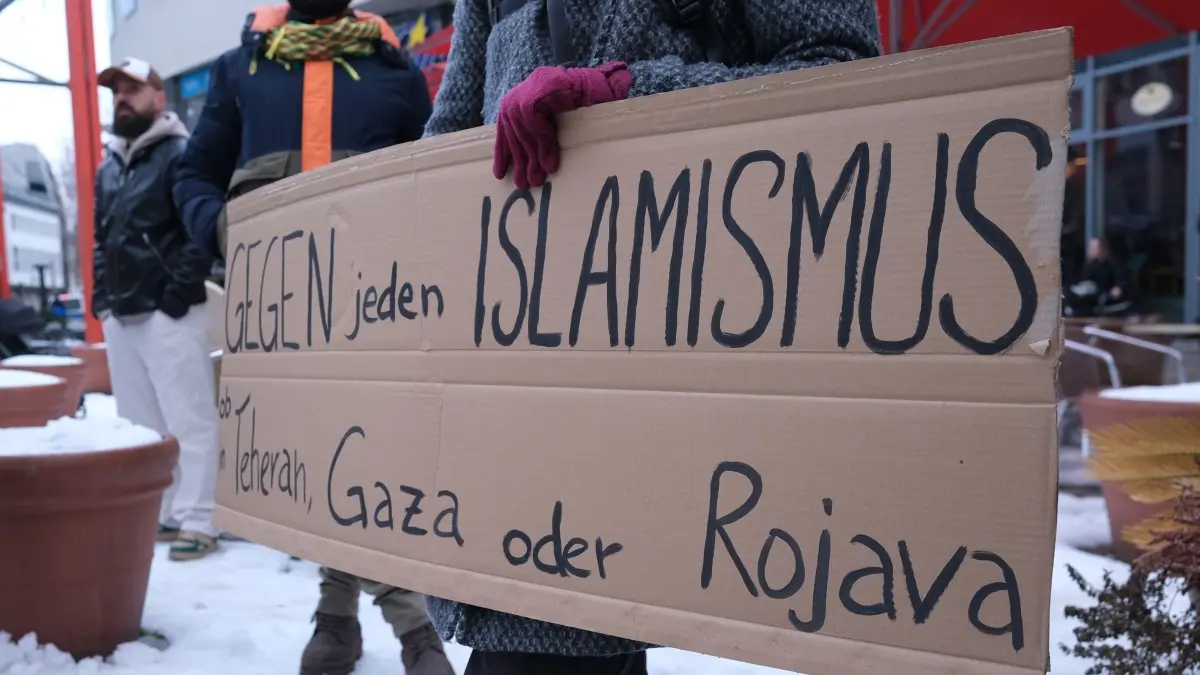 GEGEN jeden ISLAMISMUS
ob in Teheran, Gaza oder Rojava